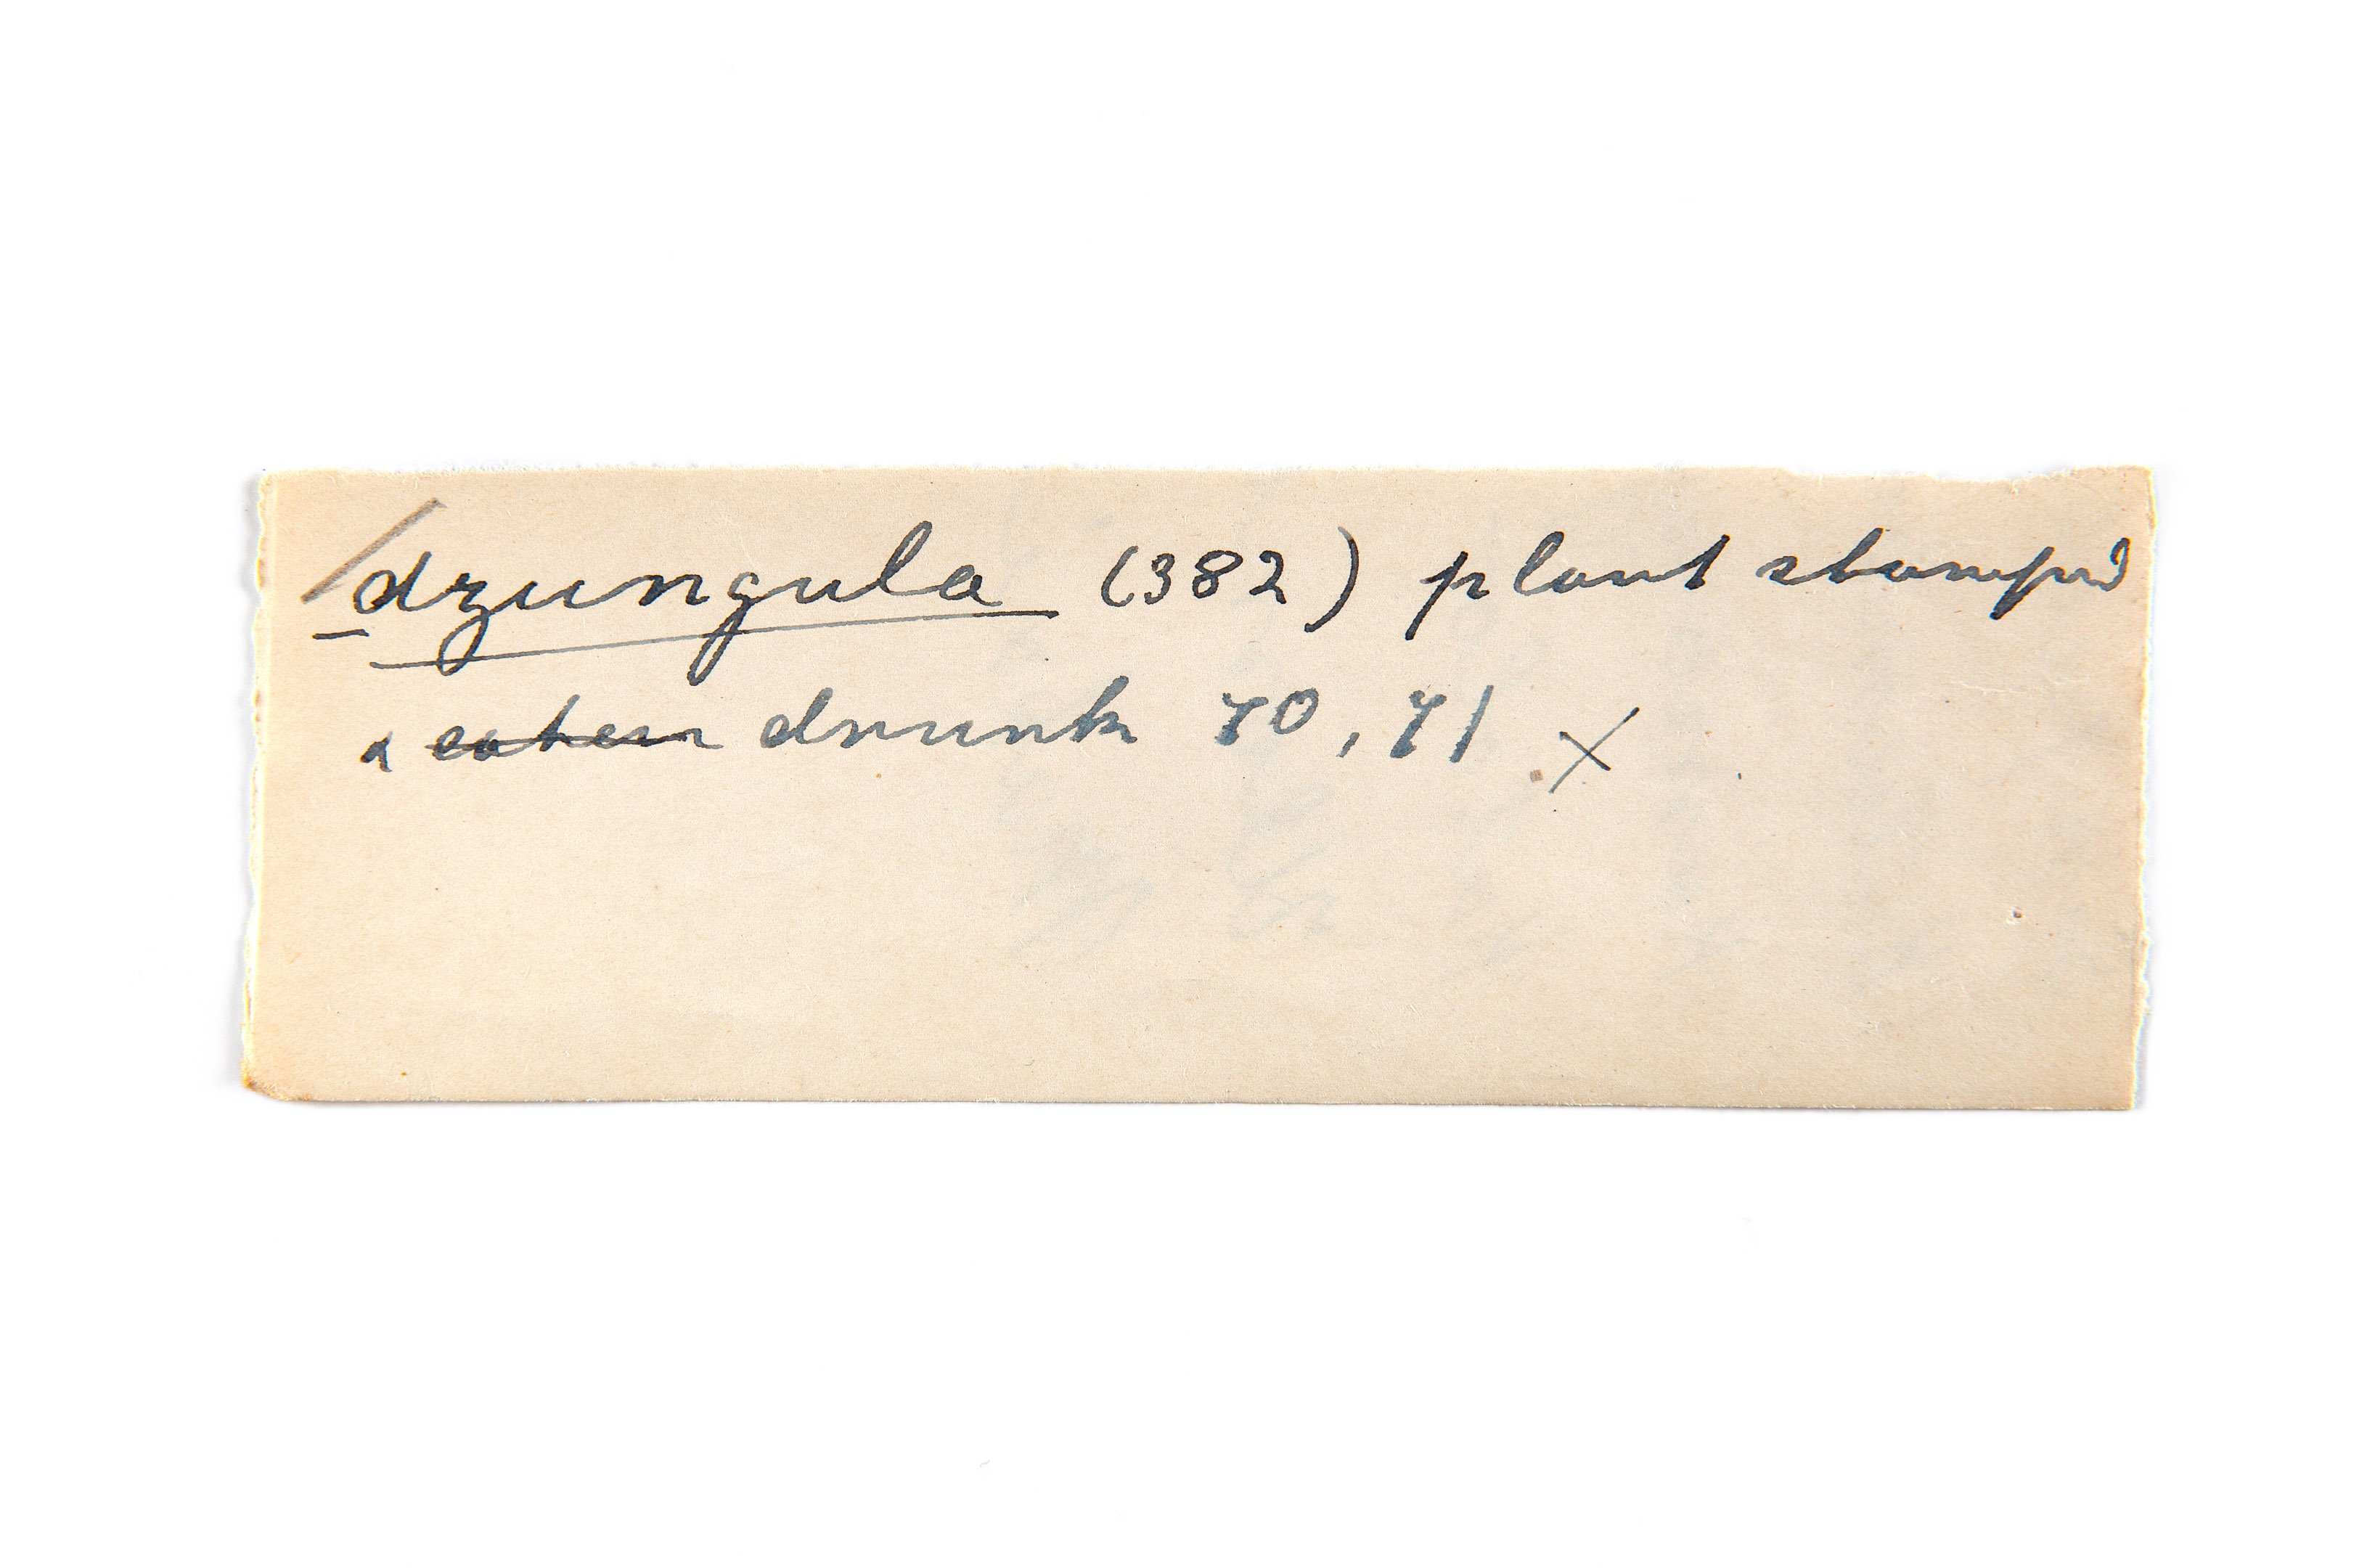 dzungula (382) plant stamped
& eaten drunk 70, 71 x